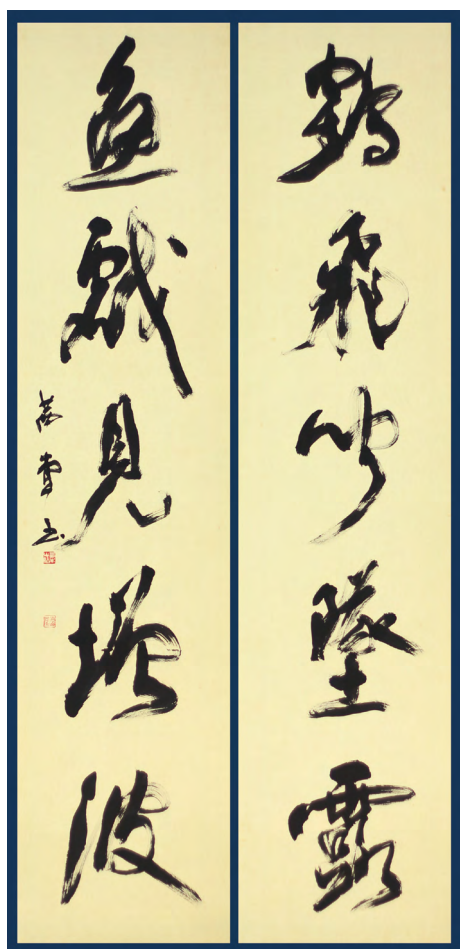 鶴飛聞墜露
魚戲見增波